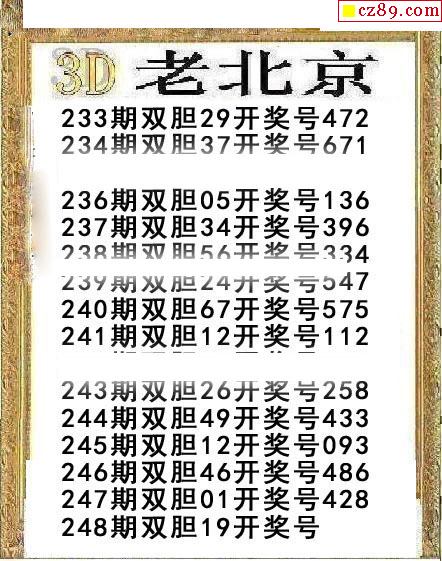 cz89.com
3D 老北京
233期双胆29开奖号472
234期双胆37开奖号671
236期双胆05开奖号136
237期双胆34开奖号396
238期双胆56开奖号334
239期双胆24开奖号547
240期双胆67开奖号575
241期双胆12开奖号112
243期双胆26开奖号258
244期双胆49开奖号433
245期双胆12开奖号093
246期双胆46开奖号486
247期双胆01开奖号428
248期双胆19开奖号